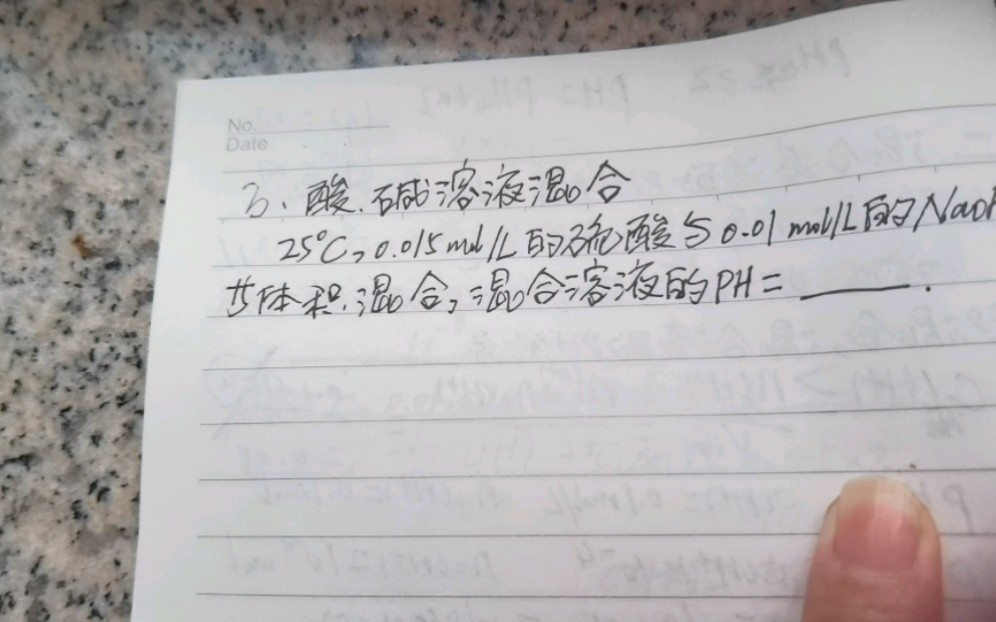 No.
Date
3、酸、碱溶液混合
25℃,0.015mol/L的硫酸与0.01mol/L的NaOH
等体积混合,混合溶液的PH=______.